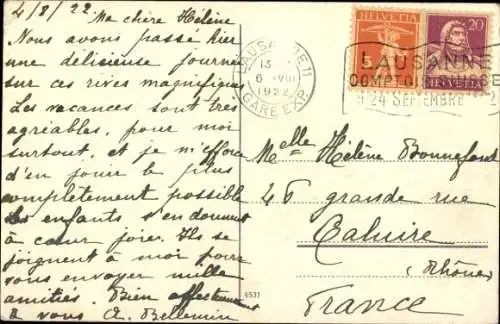 4/8/22. Ma chère Hélène
Nous avons passé hier
une délicieuse journée
sur ces rives magnifiques
Les vacances sont très
agréables, pour moi
surtout, et je m'efforce
d'en jouir le plus
complètement possible
Les enfants s'en donnent
à cœur joie. Ils se
joignent à moi pour
vous envoyer mille
amitiés. Bien affectueusement
à vous A. Bellemin
4531
LAUSANNE 11
13
6 VIII
1922
GARE EXP.
HELVETIA
5
20
HELVETIA
LAUSANNE
COMPTOIR SUISSE
9-24 SEPTEMBRE
Melle Hélène Bonnefond
46 grande rue
Caluire
(Rhône)
France